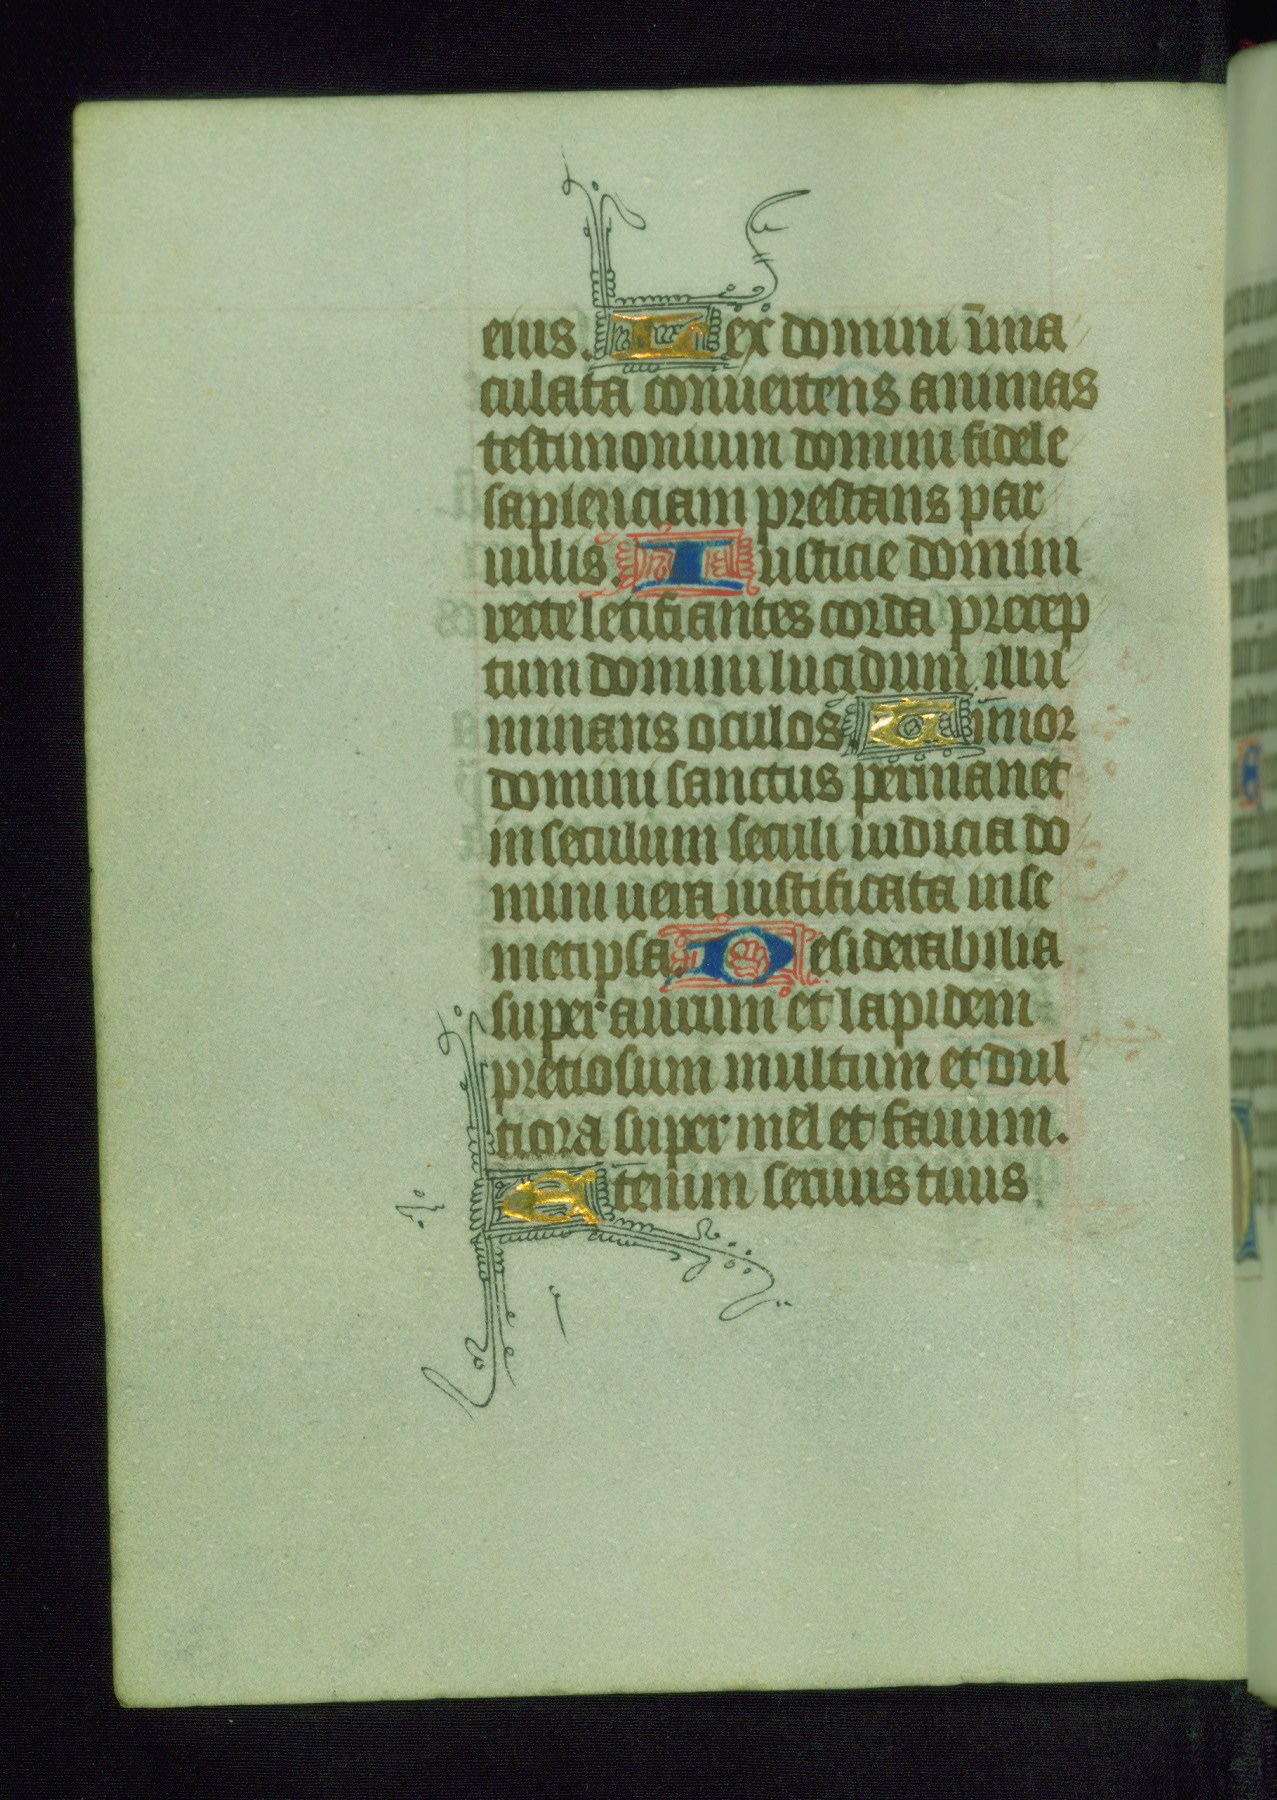 eius. Lex domini īma
culata convertens animas
testimonium domini fidele
sapienciam prestans par
uulis. Iusticie domini
recte letificantes corda precep
tum domini lucidum illu
minans oculos. Timor
domini sanctus permanet
in seculum seculi iudicia do
mini uera iustificata in se
metipsa. Desiderabilia
super aurum et lapidem
pretiosum multum et dul
tiora super mel et fauum.
Etenim seruus tuus